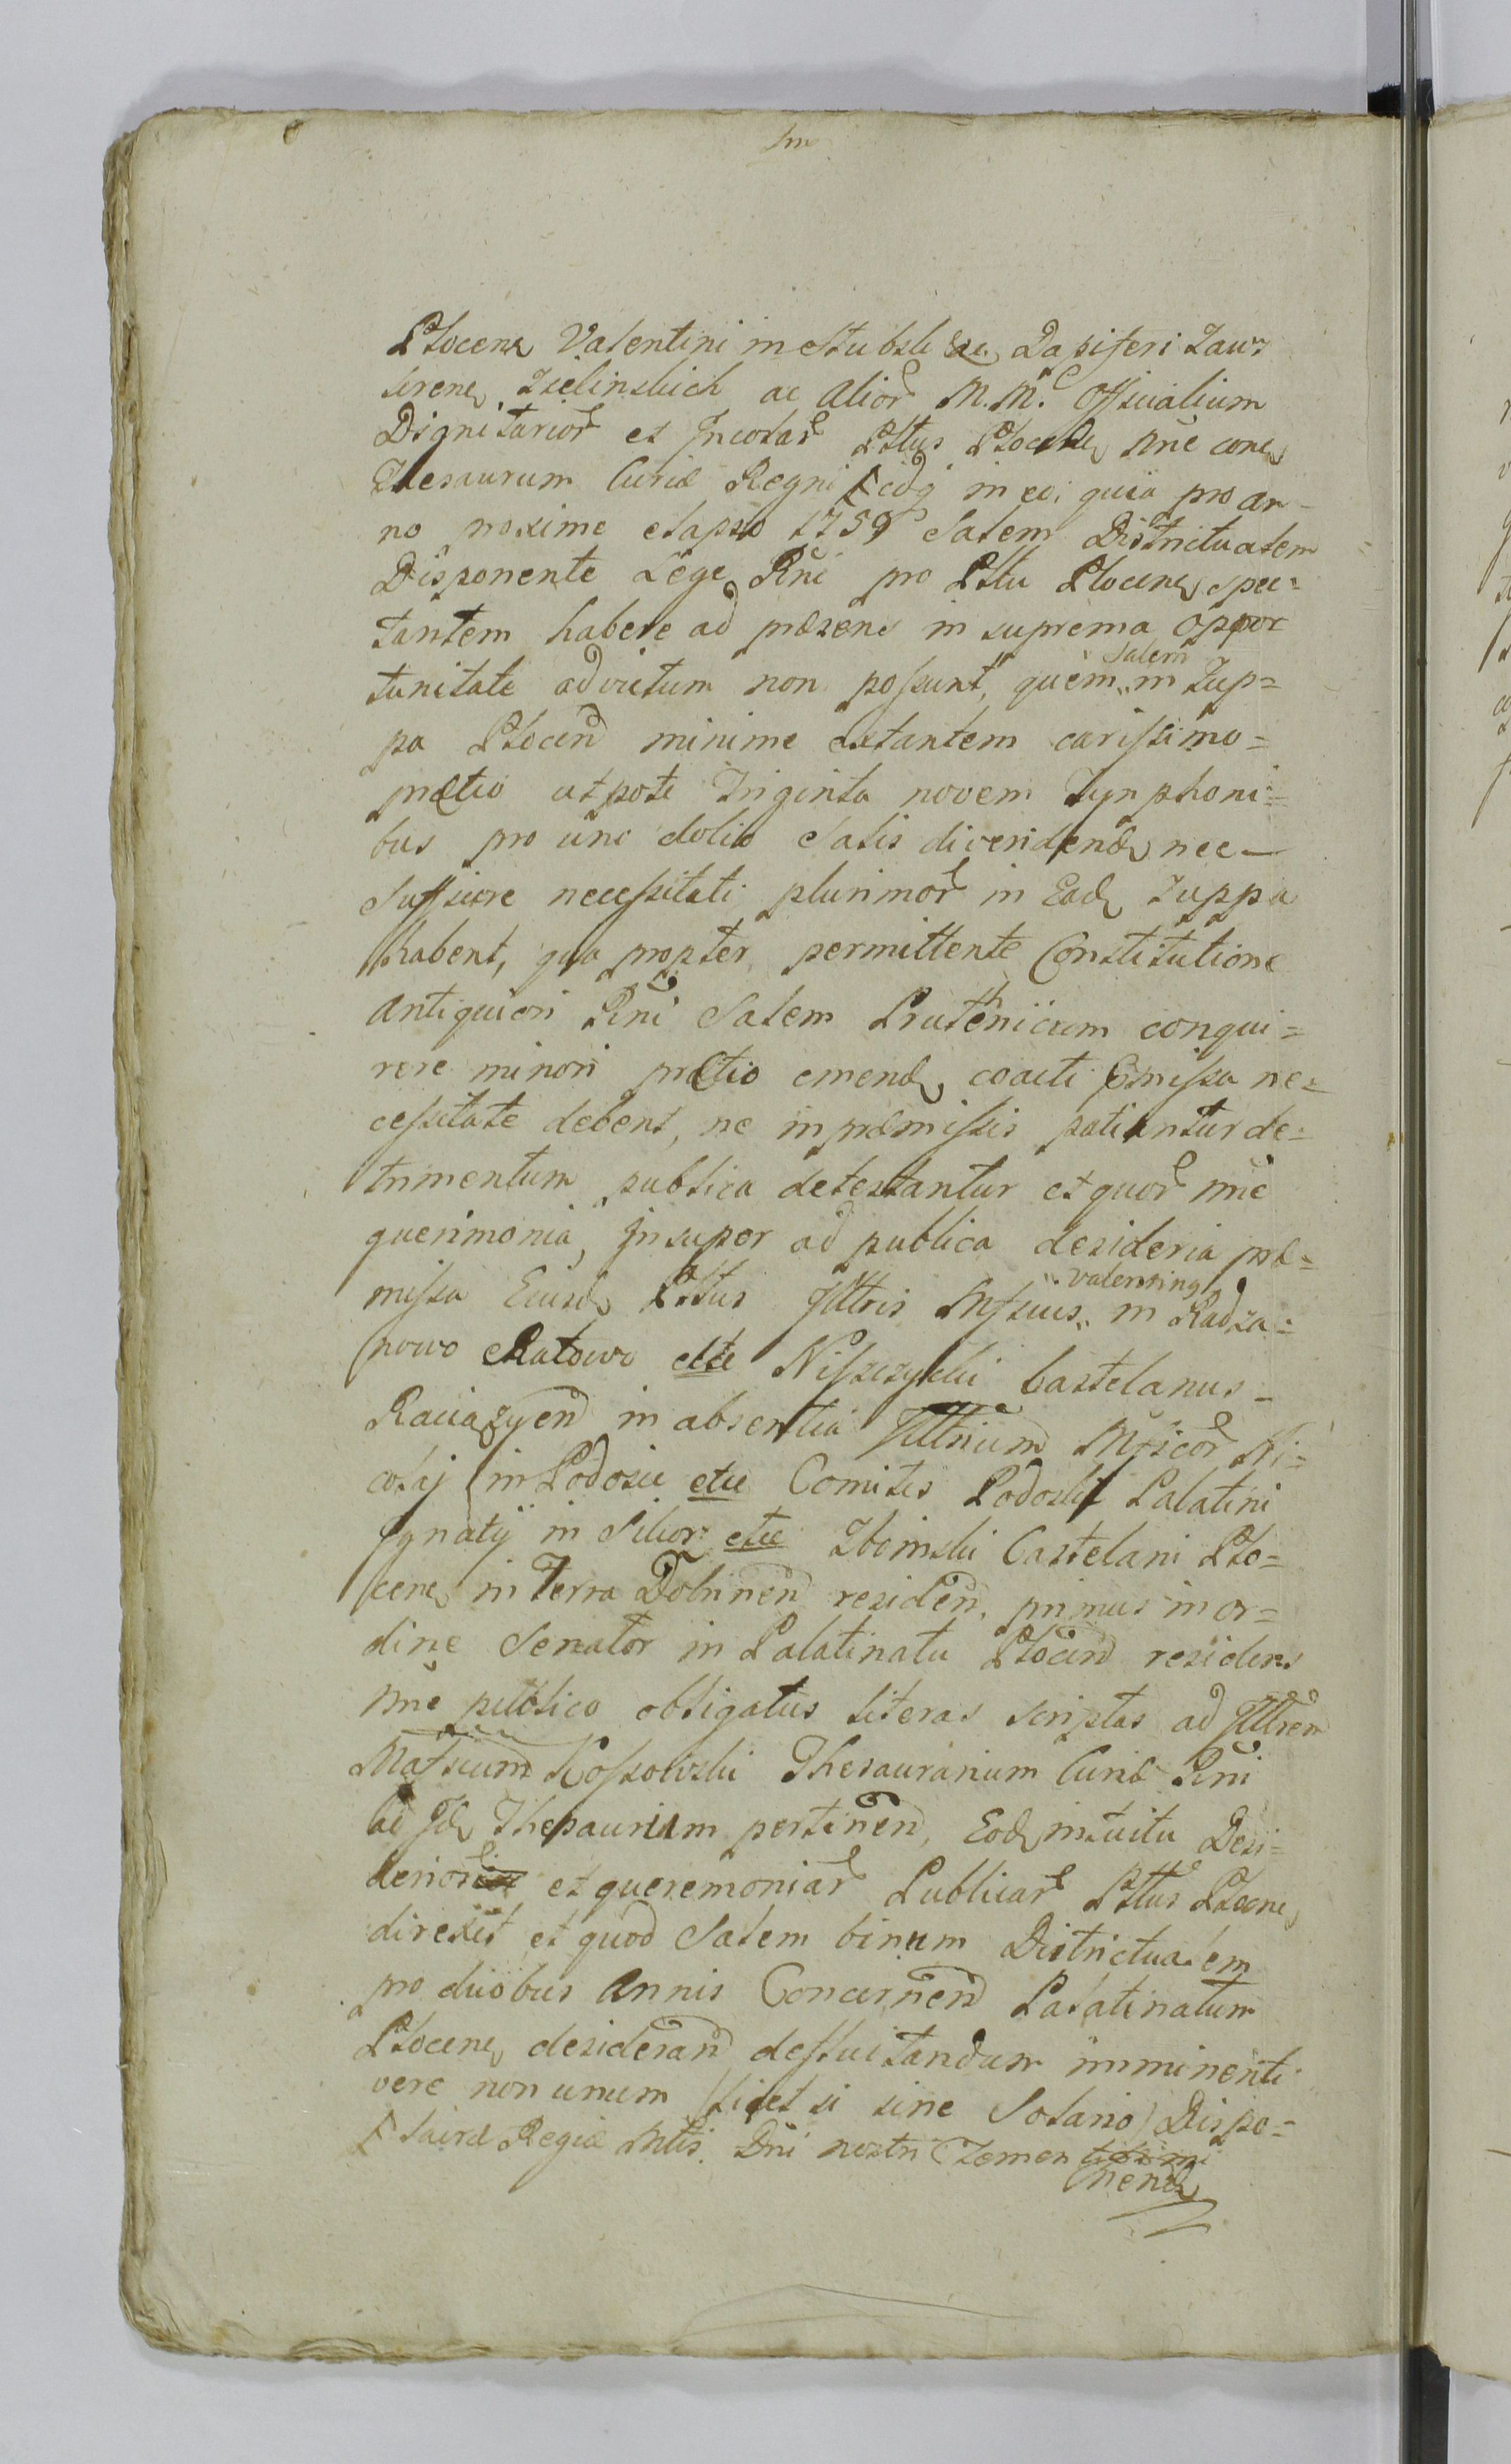 Plocens Valentini in Stubsk &c. Dapiferi Zaw-
krens, Zielinskich ac alior M. M. Officialium
Dignitarior et Incolar Pttus Plocens, nne cone
Thesaurum Curiæ Regni F idq in eo; quia pro an-
no proxime elapso 1759 Salem Districtualem
Disponente Lege Rni pro Pttu Plocens, spec=
tantem habere ad præsens in suprema oppor
tunitate ad victum non possunt, quem „Salem„ in Zup=
pa Plocen minime extantem carissimo=
prætio utpote Triginta novem Tynphoni=
bus pro uno dolio Salis divendend, nec—
Sufficere necessitati plurimor in Ead, Zuppa
habent, qua propter permittente Constitutione
antiquiori Rni Salem Pruthenicum conqui=
rere minori prætio emend, coacti Emissa ne=
cessitate debent, ne in præmissis patiantur de=
trimentum publica detestantur et quor nne
querimonia, Insuper ad publica desideria præ=
missa Eiusd, Pttus Illtris Mfficus „Valentinus„ in Radza=
nowo Ratowo etc Niszczycki Castelanus-
Raciązyen in absentia Illtrium Mficor Ni=
colaj in Podosie etc Comitis Podoski Palatini
Ignatij in Sikorz etc Zboinski Castelani Plo=
cens, in Terra Dobrinen residen. primus in or=
dine Senator in Palatinatu Plocen residens
nne publico obligatus literas scriptas ad Illtrem
Mafficum Kossowski Thesaurarium Curiæ Rni
ac Id, Thesaurum pertinen, Eod, intuitu Desi=
derior et queremoniar Publicar Pttus Plocens,
direxit et quod Salem binum Districtualem
pro duobus Annis Concernen Palatinatum
Plocens, desideran defluitandum imminenti
vere non unum (licet si sine Solario) Dispo=
F Sacræ Regiæ Mtis. Dni nostri Clemen tissimi
nend,